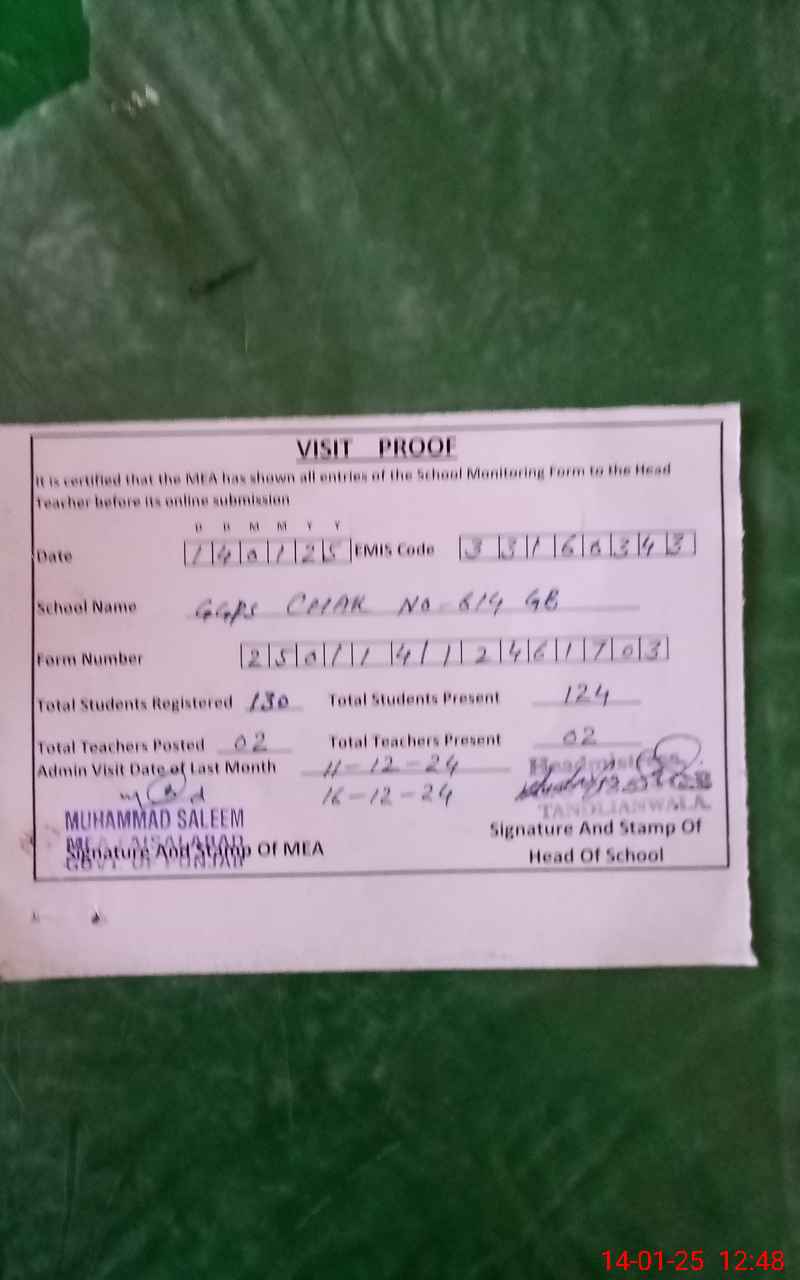 VISIT PROOF
It is certified that the MEA has shown all entries of the School Monitoring Form to the Head
Teacher before its online submission
D D M M Y Y
Date 1 4 0 1 2 5 EMIS Code 3 3 1 6 0 3 4 3
School Name GGPS CHAK No 614 GB
Form Number 2 5 0 1 1 4 1 1 2 4 6 1 7 0 3
Total Students Registered 130 Total Students Present 124
Total Teachers Posted 02 Total Teachers Present 02
Admin Visit Date of Last Month 11-12-24
Headmistress
16-12-24
MUHAMMAD SALEEM
TANDLIANWALA.
MEA FAISALABAD
Signature And Stamp Of MEA
GOVT OF PUNJAB
Signature And Stamp Of
Head Of School
14-01-25 12:48